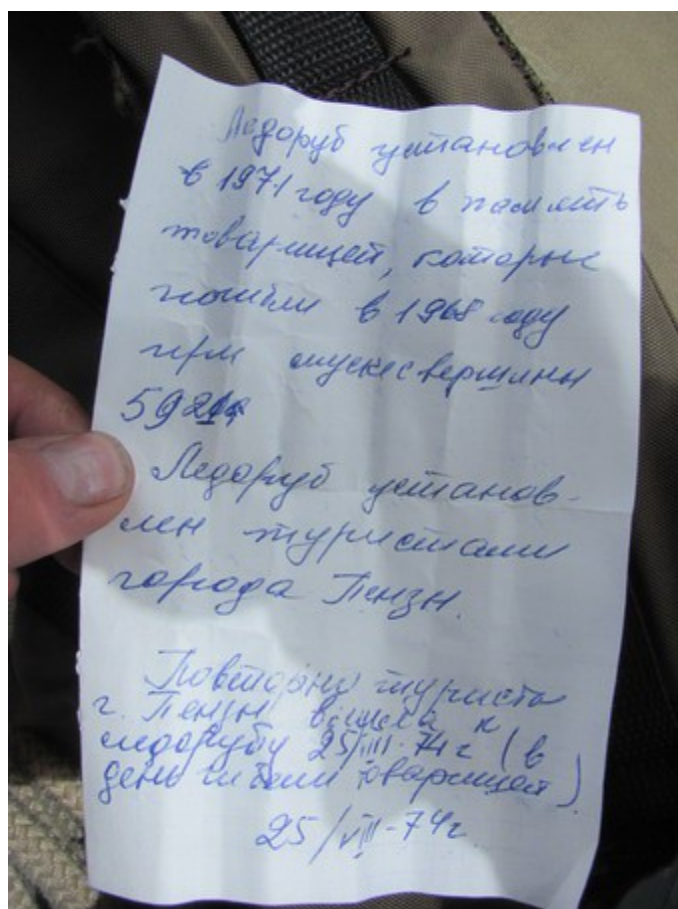 Ледоруб установлен
в 1971 году в память
товарищей, которые
погибли в 1968 году
при спуске с вершины
Ледоруб установ-
лен туристами
города Пензы.
Повторно туристы
г. Пензы к
ледорубу 25/VIII-74г (в
день гибели товарищей)
25/VIII-74г.